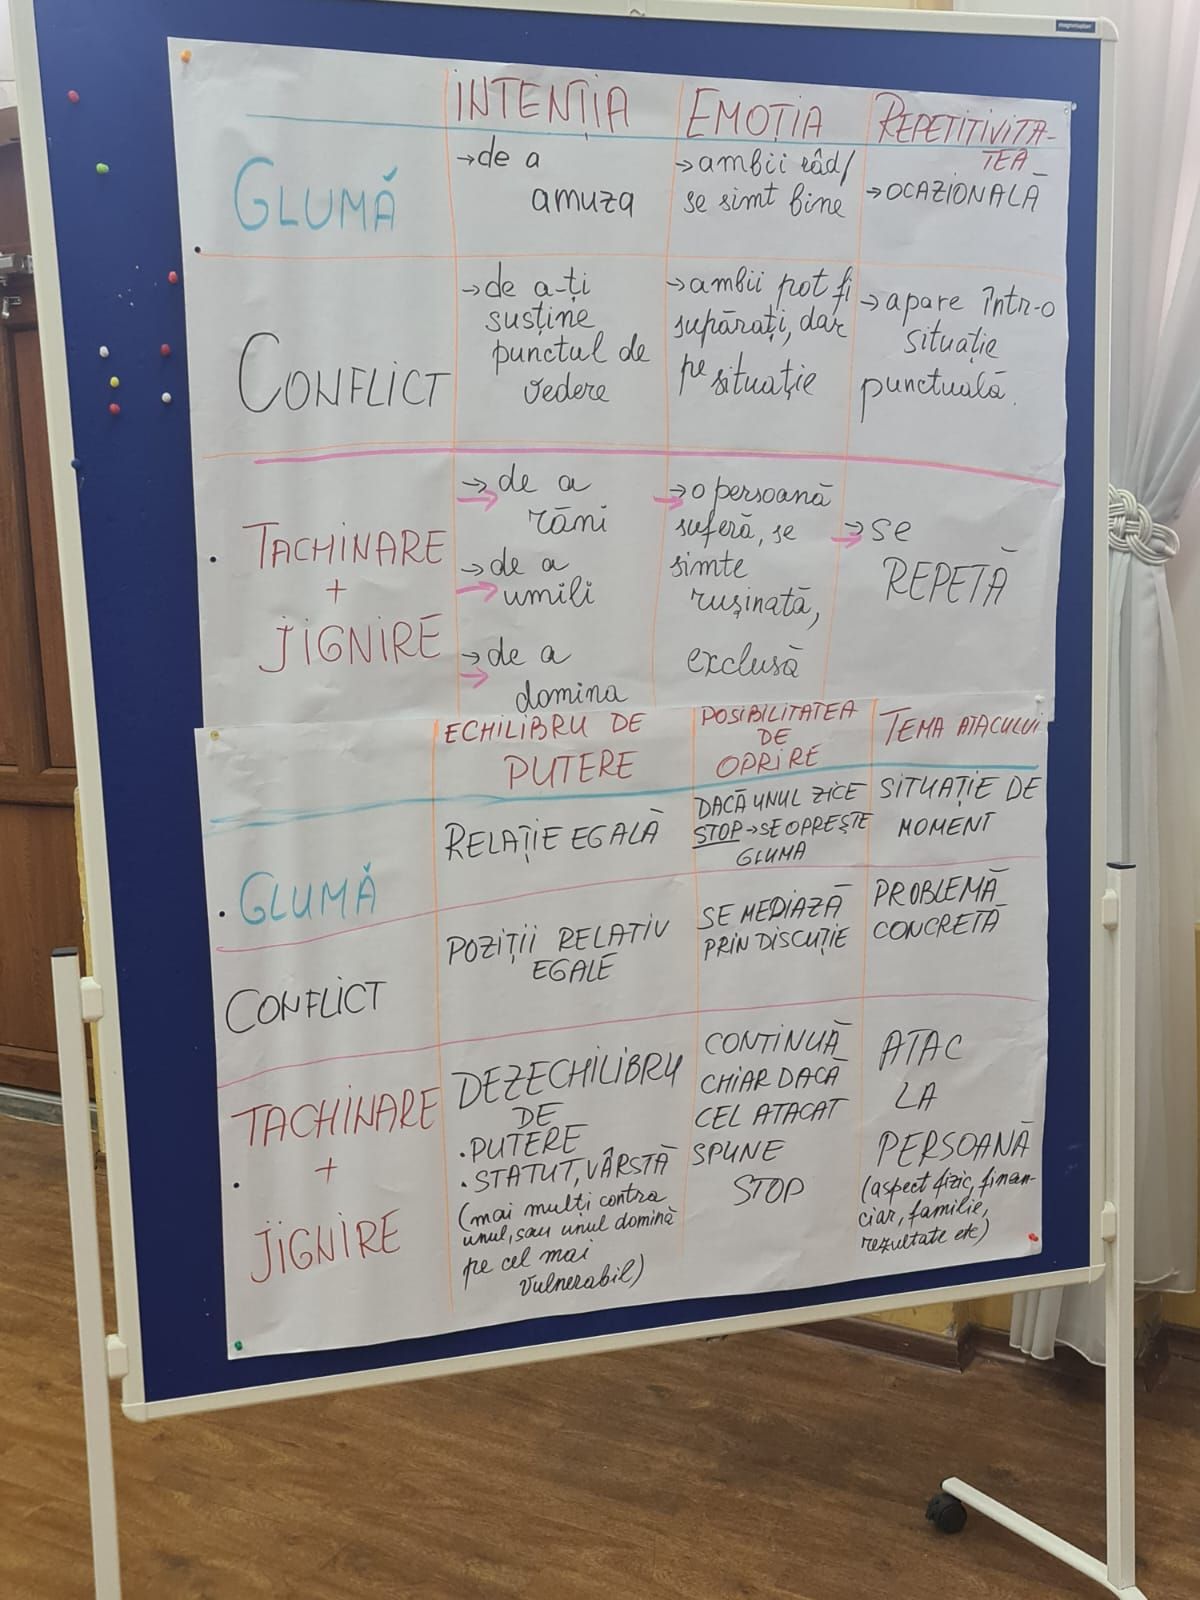 INTENȚIA EMOȚIA REPETITIVITA-
TEA
GLUMĂ
→de a
amuza
→ambii râd/
se simt bine
→OCAZIONALĂ
CONFLICT
→de a-ți
susține
punctul de
vedere
→ambii pot fi
supărați, dar
pe situație
→apare într-o
situație
punctuală.
TACHINARE
+
JIGNIRE
→de a
răni
→de a
umili
→de a
domina
→o persoană
suferă, se
simte
rușinată,
exclusă
→se
REPETĂ
ECHILIBRU DE
PUTERE
POSIBILITATEA
DE
OPRIRE
TEMA ATACULUI
GLUMĂ
RELAȚIE EGALĂ
DACĂ UNUL ZICE
STOP→SE OPREȘTE
GLUMA
SITUAȚIE DE
MOMENT
CONFLICT
POZIȚII RELATIV
EGALE
SE MEDIAZĂ
PRIN DISCUȚIE
PROBLEMĂ
CONCRETĂ
TACHINARE
+
JIGNIRE
DEZECHILIBRU
DE
•PUTERE
•STATUT, VÂRSTĂ
(mai mulți contra
unul, sau unul domină
pe cel mai
vulnerabil)
CONTINUĂ
CHIAR DACĂ
CEL ATACAT
SPUNE
STOP
ATAC
LA
PERSOANĂ
(aspect fizic, finan-
ciar, familie,
rezultate etc)